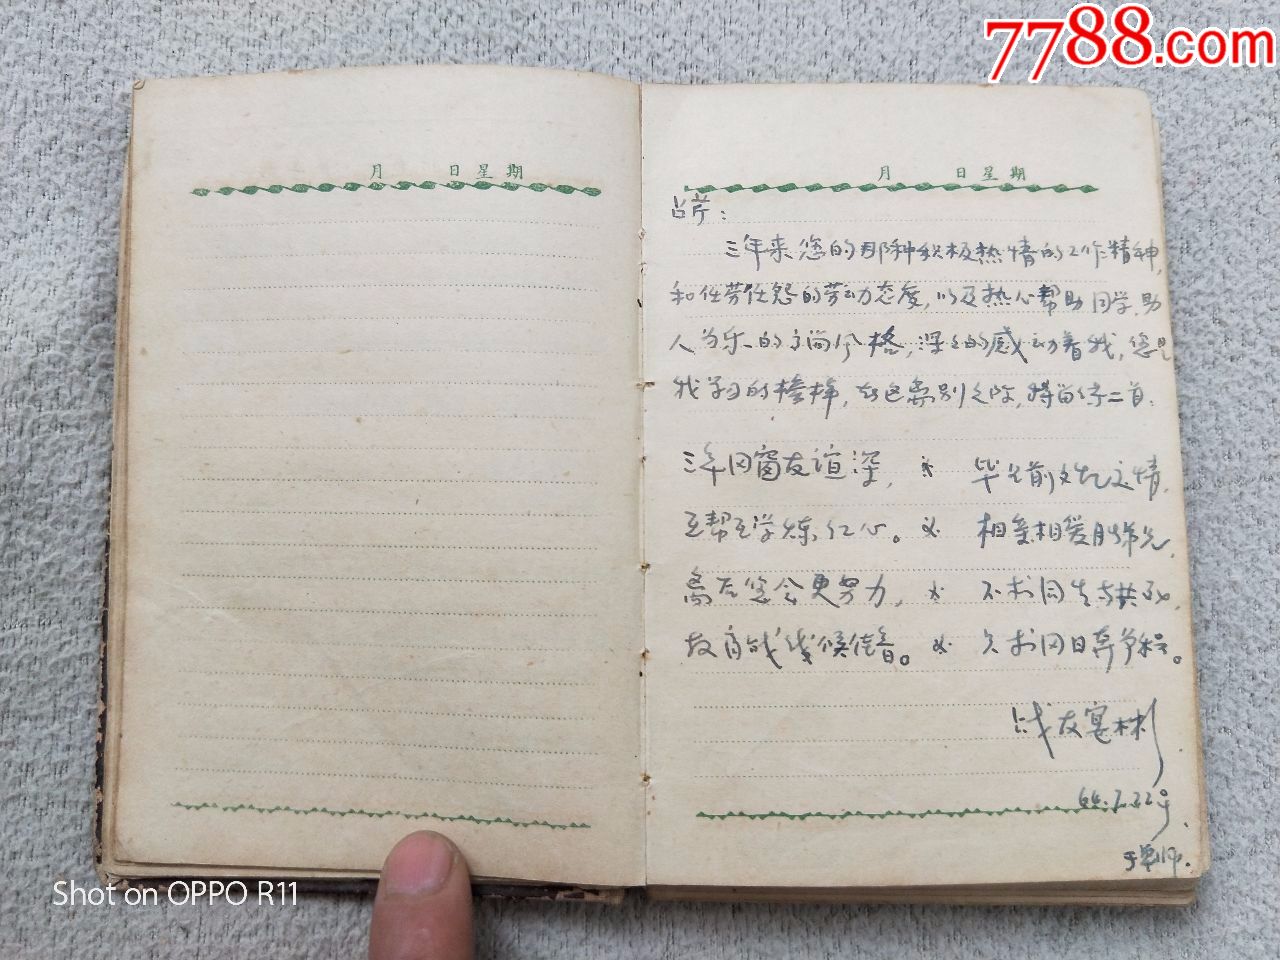 7788.com
月 日 星 期
月 日 星 期
占芹:
三年来您的那种积极热情的工作精神,
和任劳任怨的劳动态度,以及热心帮助同学,助
人为乐的高尚风格,深深的感动着我,您是
我学习的榜样,在这离别之际,特留诗二首:
三年同窗友谊深, 毕业前文
互帮互学炼红心。 相亲相爱胜弟兄,
离后您会更努力, 不求同生与共死,
教育战线候佳音。 只求同日
战友
22号
Shot on OPPO R11